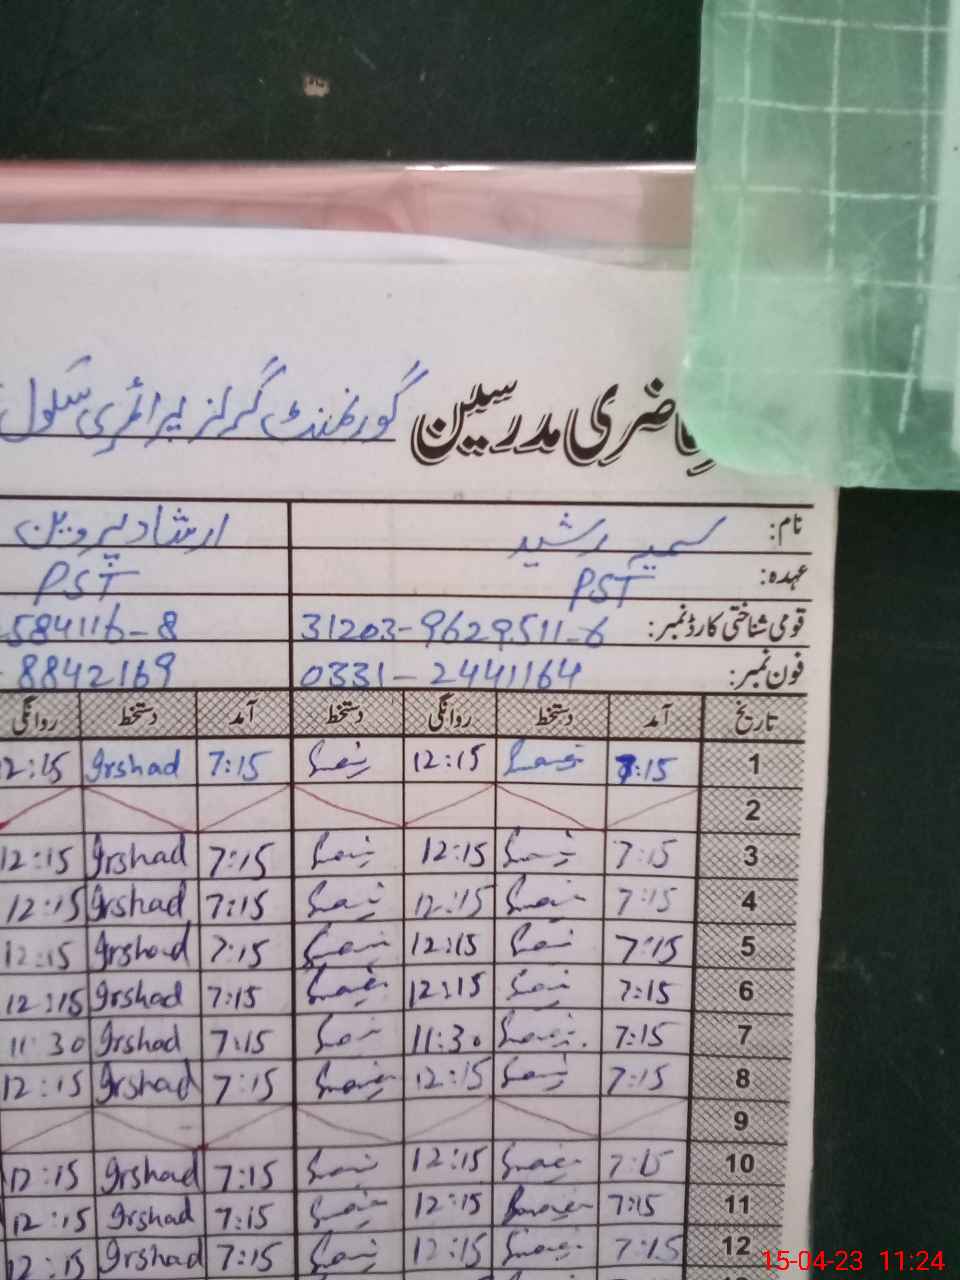 ضری مدرسین گورنمنٹ گرلز پرائمری سکول
نام: سمیہ رشید ارشاد پروین
عہدہ: PST PST
قومی شناختی کارڈ نمبر: 31203-9629511-6 584116-8
فون نمبر: 0331-2441164 8842169
تاریخ آمد دستخط روانگی دستخط آمد دستخط روانگی
1 7:15 12:15 7:15 Irshad 12:15
2
3 7:15 12:15 7:15 Irshad 12:15
4 7:15 12:15 7:15 Irshad 12:15
5 7:15 12:15 7:15 Irshad 12:15
6 7:15 12:15 7:15 Irshad 12:15
7 7:15 11:30 7:15 Irshad 11:30
8 7:15 12:15 7:15 Irshad 12:15
9
10 7:15 12:15 7:15 Irshad 12:15
11 7:15 12:15 7:15 Irshad 12:15
12 7:15 12:15 7:15 Irshad 12:15
15-04-23 11:24